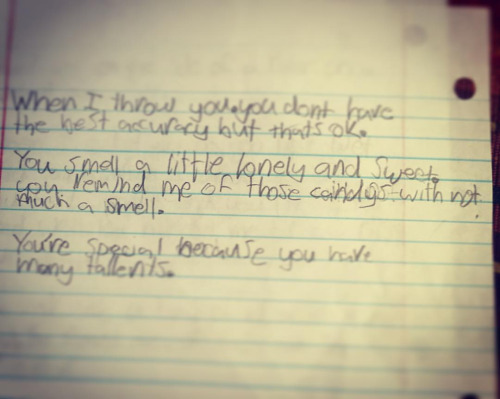 When I throw you.you dont have
the best accuracy but thats ok.
You smell a little lonely and sweet.
you remind me of those candys with not
much a smell.
You're special because you have
many tallents.